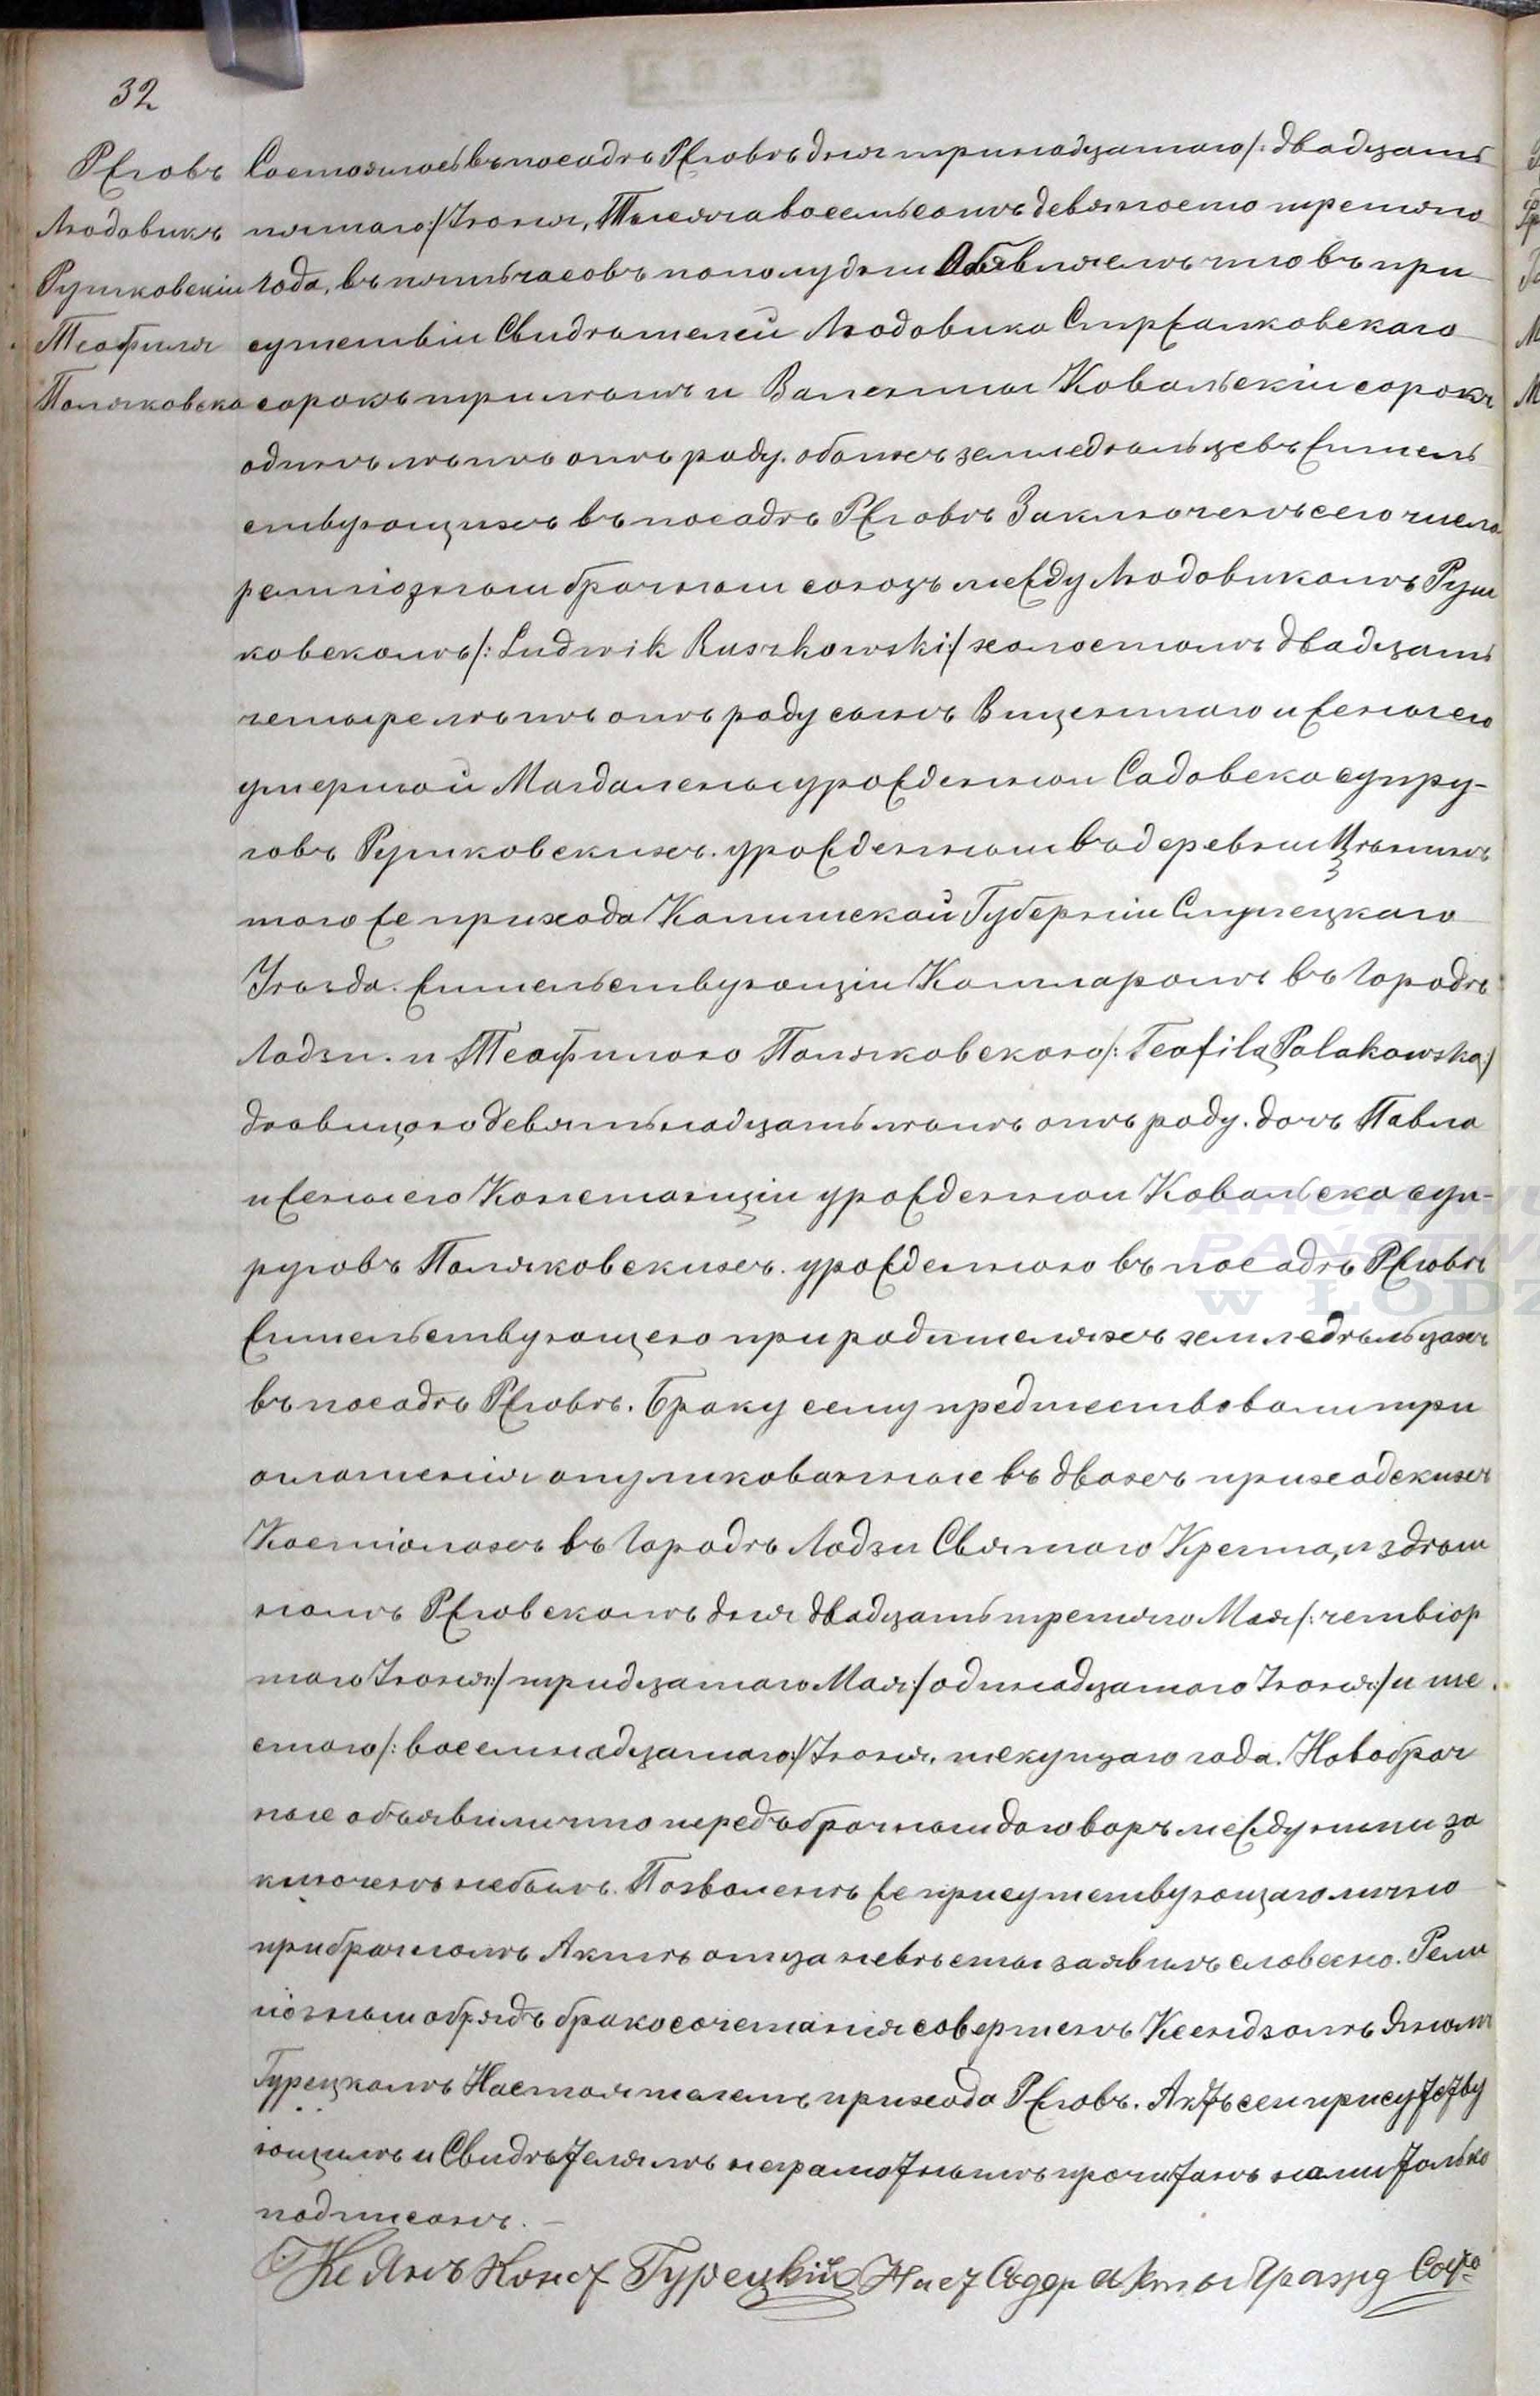 32
Ржговъ
Людовикъ
Рушковскій
Теофиля
Поляковска
Состоялось въ посадѣ Ржговѣ дня тринадцатаго /: двадцать
пятаго :/ Іюня, Тысяча восемьсотъ девяносто третяго
года, въ пять часовъ пополудни Объявляемъ что въ при
сутствіи Свидѣтелей Людовика Стржалковскаго
сорокъ три лѣтъ и Валенты Ковальскій сорокъ
одинъ лѣтъ отъ роду. обоихъ земледѣльцевъ житель
ствующихъ въ посадѣ Ржговѣ Заключенъ сего числа
религіозный брачный союзъ между Людовикомъ Руш
ковскомъ /: Ludwik Ruszkowski :/ холостомъ двадцать
четыре лѣтъ отъ роду сынъ Вицентаго и женыего
умершой Магдалены урожденной Садовска супру-
говъ Рушковскихъ. урожденный въ деревни Цѣнинъ
того же прихода Калишской Губерніи Слупецкаго
Уѣзда. жительствующій Коттларомъ въ Городѣ
Лодзи. и Теофилою Поляковскою /: Teofila Polakowska :/
дѣвицою девятьнадцать лѣтъ отъ роду. дочъ Павла
и женыего Констанціи урожденной Ковальска суп-
руговъ Поляковскихъ. урожденною въ посадѣ Ржговѣ
жительствующею при родителяхъ земледѣльцахъ
въ посадѣ Ржговѣ. Браку сему предшествовали три
оглошенія опуликованные въ двохъ приходскихъ
Костіолахъ въ Городѣ Лодзи Святаго Креста, и здѣш
номъ Ржговскомъ дня двадцать третяго Мая /: четвіор
таго Іюня :/ тридцатаго Мая :/ одинадцатаго Іюня :/ и ше
стого /: восемнадцатаго :/ Іюня. текущаго года. Новобрач
ные объявили что передъ брачный договоръ между ними за
ключенъ небылъ. Позволенъ же присутствующаго лично
при брачномъ Актѣ отца невѣсты заявилъ словесно. Рели
гіозный обрядъ бракосочетанія совершенъ Ксендзомъ Яномъ
Турецкомъ Настоятелемъ прихода Ржговъ. Актъ сей присутству
ющимъ и Свидѣтелямъ неграмотнымъ прочитанъ нами только
подписанъ. —
Кс Янъ Конст Турецкій Наст Содер Акты Гражд Сост